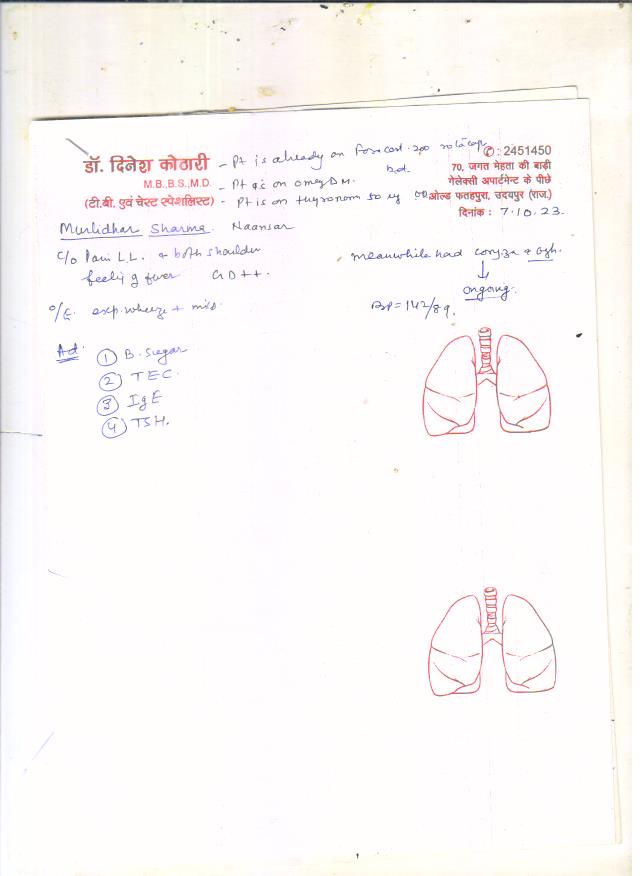 - Pt is already on Foracort 200 rotacap
डॉ. दिनेश कोठारी
M.B.,B.S.,M.D.
(टी.बी. एवं चेस्ट स्पेशलिस्ट)
✆ : 2451450
70, जगत मेहता की बाड़ी
गेलेक्सी अपार्टमेन्ट के पीछे
ओल्ड फतहपुरा, उदयपुर (राज.)
दिनांक : 7.10.23.
b.d.
- Pt is on omez D M.
- Pt is on thyronorm 50 ug OD
Murlidhar Sharma. Naansar
C/o Pain L.L. & both shoulder
feeling fever GD++.
meanwhile had coryza &
↓
ongoing.
O/E. exp. wheeze + mild.
BP = 142/89.
Ad.
① B. Sugar
② TEC.
③ IgE
④ TSH.